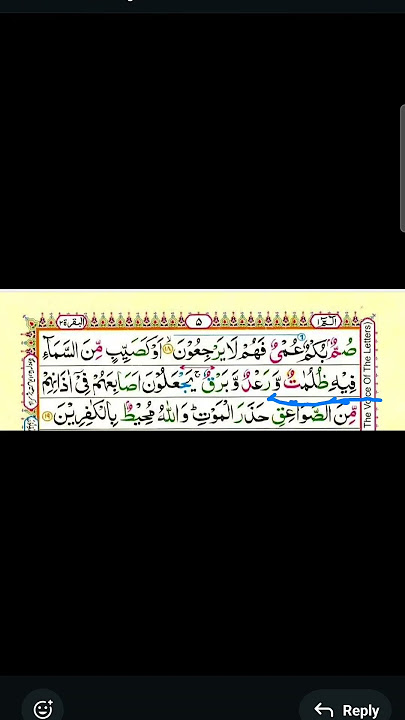 البقرة ٢
۵
الٓمّٓ ١
صُمٌّۢ بُكْمٌ عُمْیٌ فَهُمْ لَا یَرْجِعُوْنَ ۙ﴿۱۸﴾ اَوْ كَصَیِّبٍ مِّنَ السَّمَآءِ
فِیْهِ ظُلُمٰتٌ وَّ رَعْدٌ وَّ بَرْقٌ ۚ یَجْعَلُوْنَ اَصَابِعَهُمْ فِیْۤ اٰذَانِهِمْ
مِّنَ الصَّوَاعِقِ حَذَرَ الْمَوْتِ ؕ وَ اللّٰهُ مُحِیْطٌۢ بِالْكٰفِرِیْنَ ﴿۱۹﴾
The Voice Of The Letters)
Reply